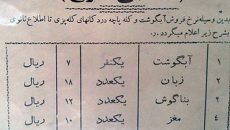 بدین وسیله نرخ فروش آبگوشت و کله پاچه در دکانهای کله‌پزی تا اطلاع ثانوی
بشرح زیر اعلام میگردد.
۱ آبگوشت یکنفر ۷ ریال
۲ زبان یکعدد ۱۸ ریال
۳ بناگوش یکعدد ۱۲ ریال
۴ مغز یکعدد ۱۰ ریال